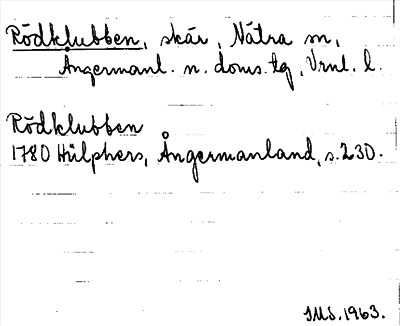 Rödklubben, skär, Nätra sn,
Ångermanl. n. doms. tg, Vrnl. l.
Rödklubben
1780 Hülphers, Ångermanland, s. 230.
IMS. 1963.